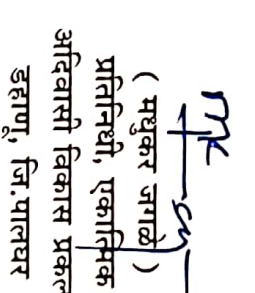 ( मधुकर जगळे )
प्रतिनिधी, एकात्मिक
आदिवासी विकास प्रकल
डहाणू, जि.पालघर